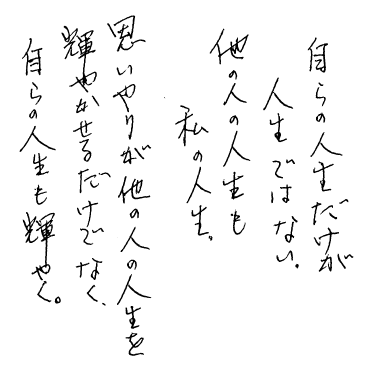 自らの人生だけが
人生ではない。
他の人の人生も
私の人生。
思いやりが他の人の人生を
輝やかせるだけでなく、
自らの人生も輝やく。